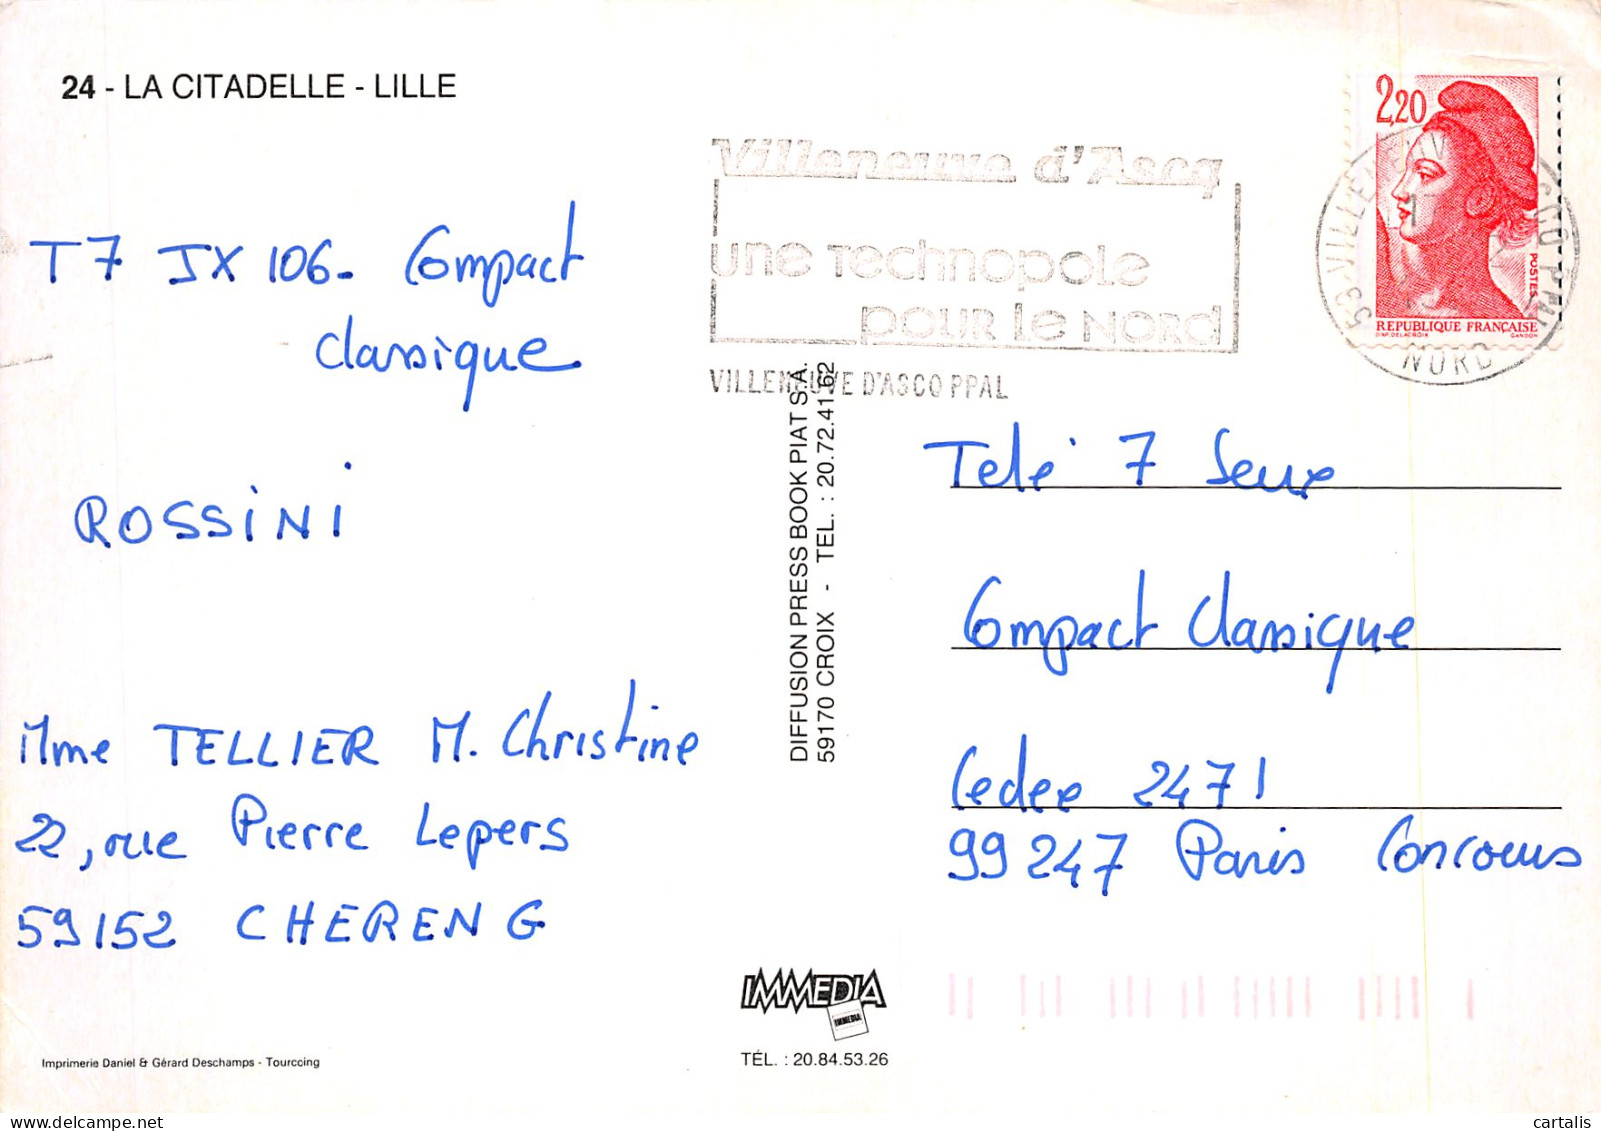 24 - LA CITADELLE - LILLE
T7 JX 106- Compact
classique
ROSSINI
Mme TELLIER M. Christine
22, rue Pierre Lepers
59152 CHERENG
Imprimerie Daniel & Gérard Deschamps - Tourcoing
Villeneuve d'Ascq
une technopole
pour le nord
VILLENEUVE D'ASCQ PPAL
DIFFUSION PRESS BOOK PIAT S.A.
59170 CROIX - TEL. : 20.72.41.62
IMMEDIA
IMMEDIA
TÉL. : 20.84.53.26
2,20
POSTES
REPUBLIQUE FRANÇAISE
D'AP. DELACROIX GANDON
NORD
Télé 7 Jeux
Compact Classique
Cedex 2471
99247 Paris Concours
cartalis